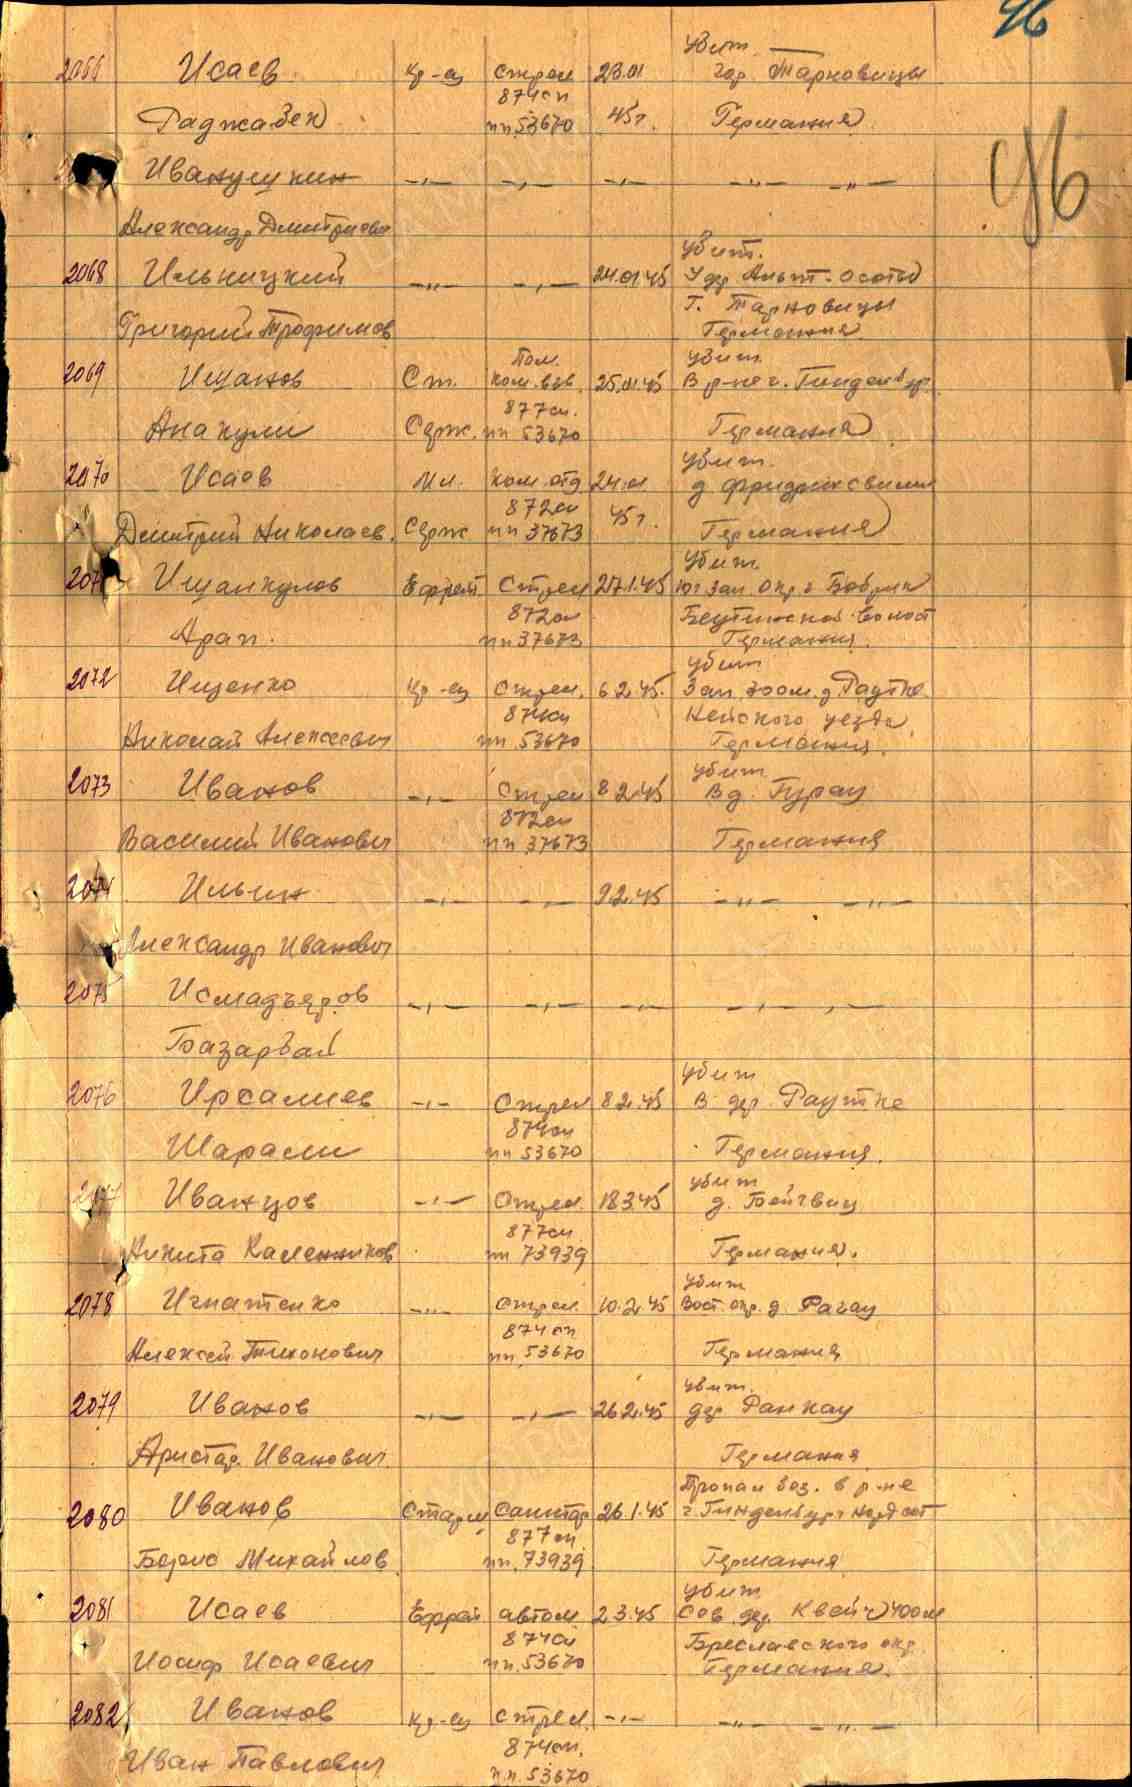 46
46
2066 Исаев Кр-ец Стрел 23.01 убит гор. Тарновицы
Раджабек 874сп пп 53670 45г. Германия
Иванушкин -"- -"- -"- -"- -"-
Александр Дмитриевич
2068 Ильницкий -"- -"- 24.01.45 убит.
У дер Альт-
Г. Тарновицы
Григорий Трофимов Германия
2069 Ишанов Ст. Пом. ком. взв. 25.01.45 убит
В р-не г. Гинденбург
Анакули Серж. 877сп. пп 53670 Германия
2070 Исаев Мл. Ком. отд 24.01 убит
д Фридрихсвилли
Дмитрий Николаев. Серж 872сп пп 37673 45г. Германия
2071 Ишанкулов Ефрейт Стрел 27.1.45 убит
Юг Зап. окр. г Бобрик
Арап. 872сп пп 37673 Германия
2072 Ищенко Кр-ец Стрел. 6.2.45. убит
Зап. 300м. д. Раутке
874сп Нейского уезда
Николай Алексеевич пп. 53670 Германия.
2073 Иванов -"- Стрел 8.2.45 убит
В д. Гурау
Василий Иванович 872сп пп. 37673 Германия
2074 Ильин -"- -"- 9.2.45 -"- -"-
Александр Иванович
2075 Исмадъяров -"- -"- -"- -"- -"-
Базарбай
2076 Ирсалиев -"- Стрел 8.2.45 убит
В. дер. Раутке
Шарали 874сп пп 53670 Германия.
2077 Иванцов -"- Стрел. 18.3.45 убит
д. Бейчвиц
Никита 877сп. пп 73939 Германия.
2078 Игнатенко -"- Стрел. 10.2.45 убит
Вост. окр. д. Рагау
Алексей Тихонович 874сп пп. 53670 Германия
2079 Иванов -"- -"- 26.2.45 убит.
дер Ранкау
Аристар. Иванович Германия
2080 Иванов Старш Санитар 26.1.45 Пропал без. в р-не
г. Гинденбург
Борис Михайлов 877сп пп. 73939 Германия
2081 Исаев Ефрейт автом 2.3.45 убит
Сев. дер. Квейч 400м
874сп Бреславского окр.
Иосиф Исаевич пп. 53670 Германия.
2082 Иванов Кр-ец Стрел. -"- -"- -"-
Иван Павлович 874сп. пп. 53670